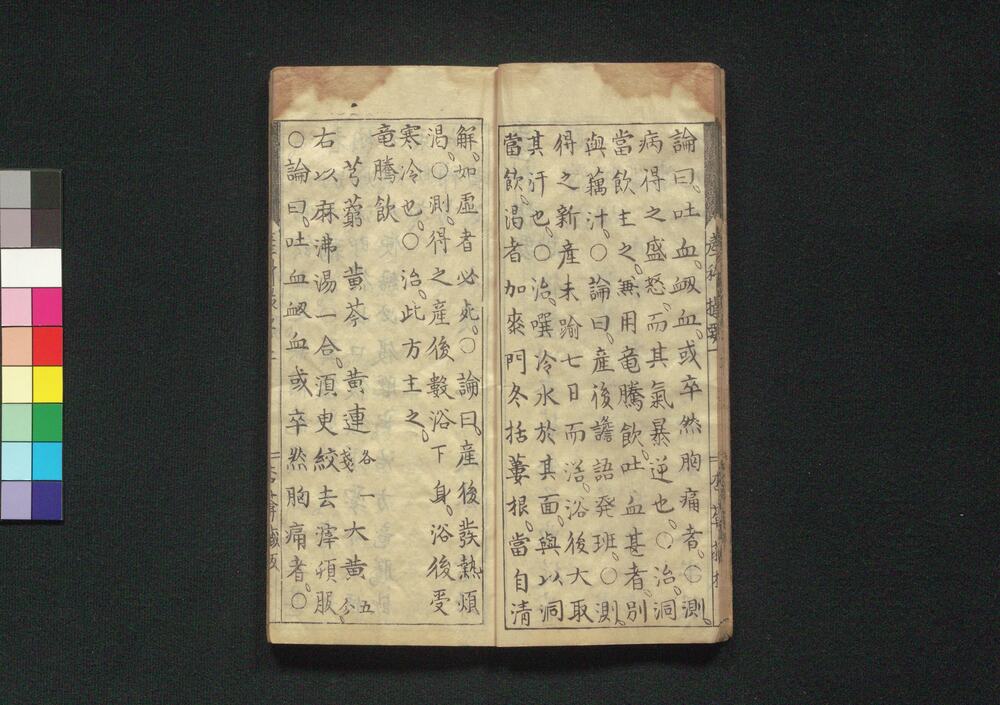 論曰。吐血衂血。或卒然胸痛者。〇測。
病得之盛怒。而其氣暴逆也。〇治。洞
當飲主之。無用竜騰飲。吐血甚者。別
與藕汁。〇論曰。産後譫語発班。〇測。
得之新産未踰七日而浴。浴後大取
其汗也。〇治。噀冷水於其面。與以洞
當飲。渇者加麥門冬括蔞根。當自清
解。如虛者必死。〇論曰。産後發熱煩
渇。〇測。得之産後數浴下身。浴後受
寒冷也。〇治。此方主之。
竜騰飲
芎藭 黄芩 黄連各一戔 大黄五分
右以麻沸湯一合。湏臾絞去滓頓服
〇論曰。吐血衂血或卒然胸痛者。〇
産科摘要